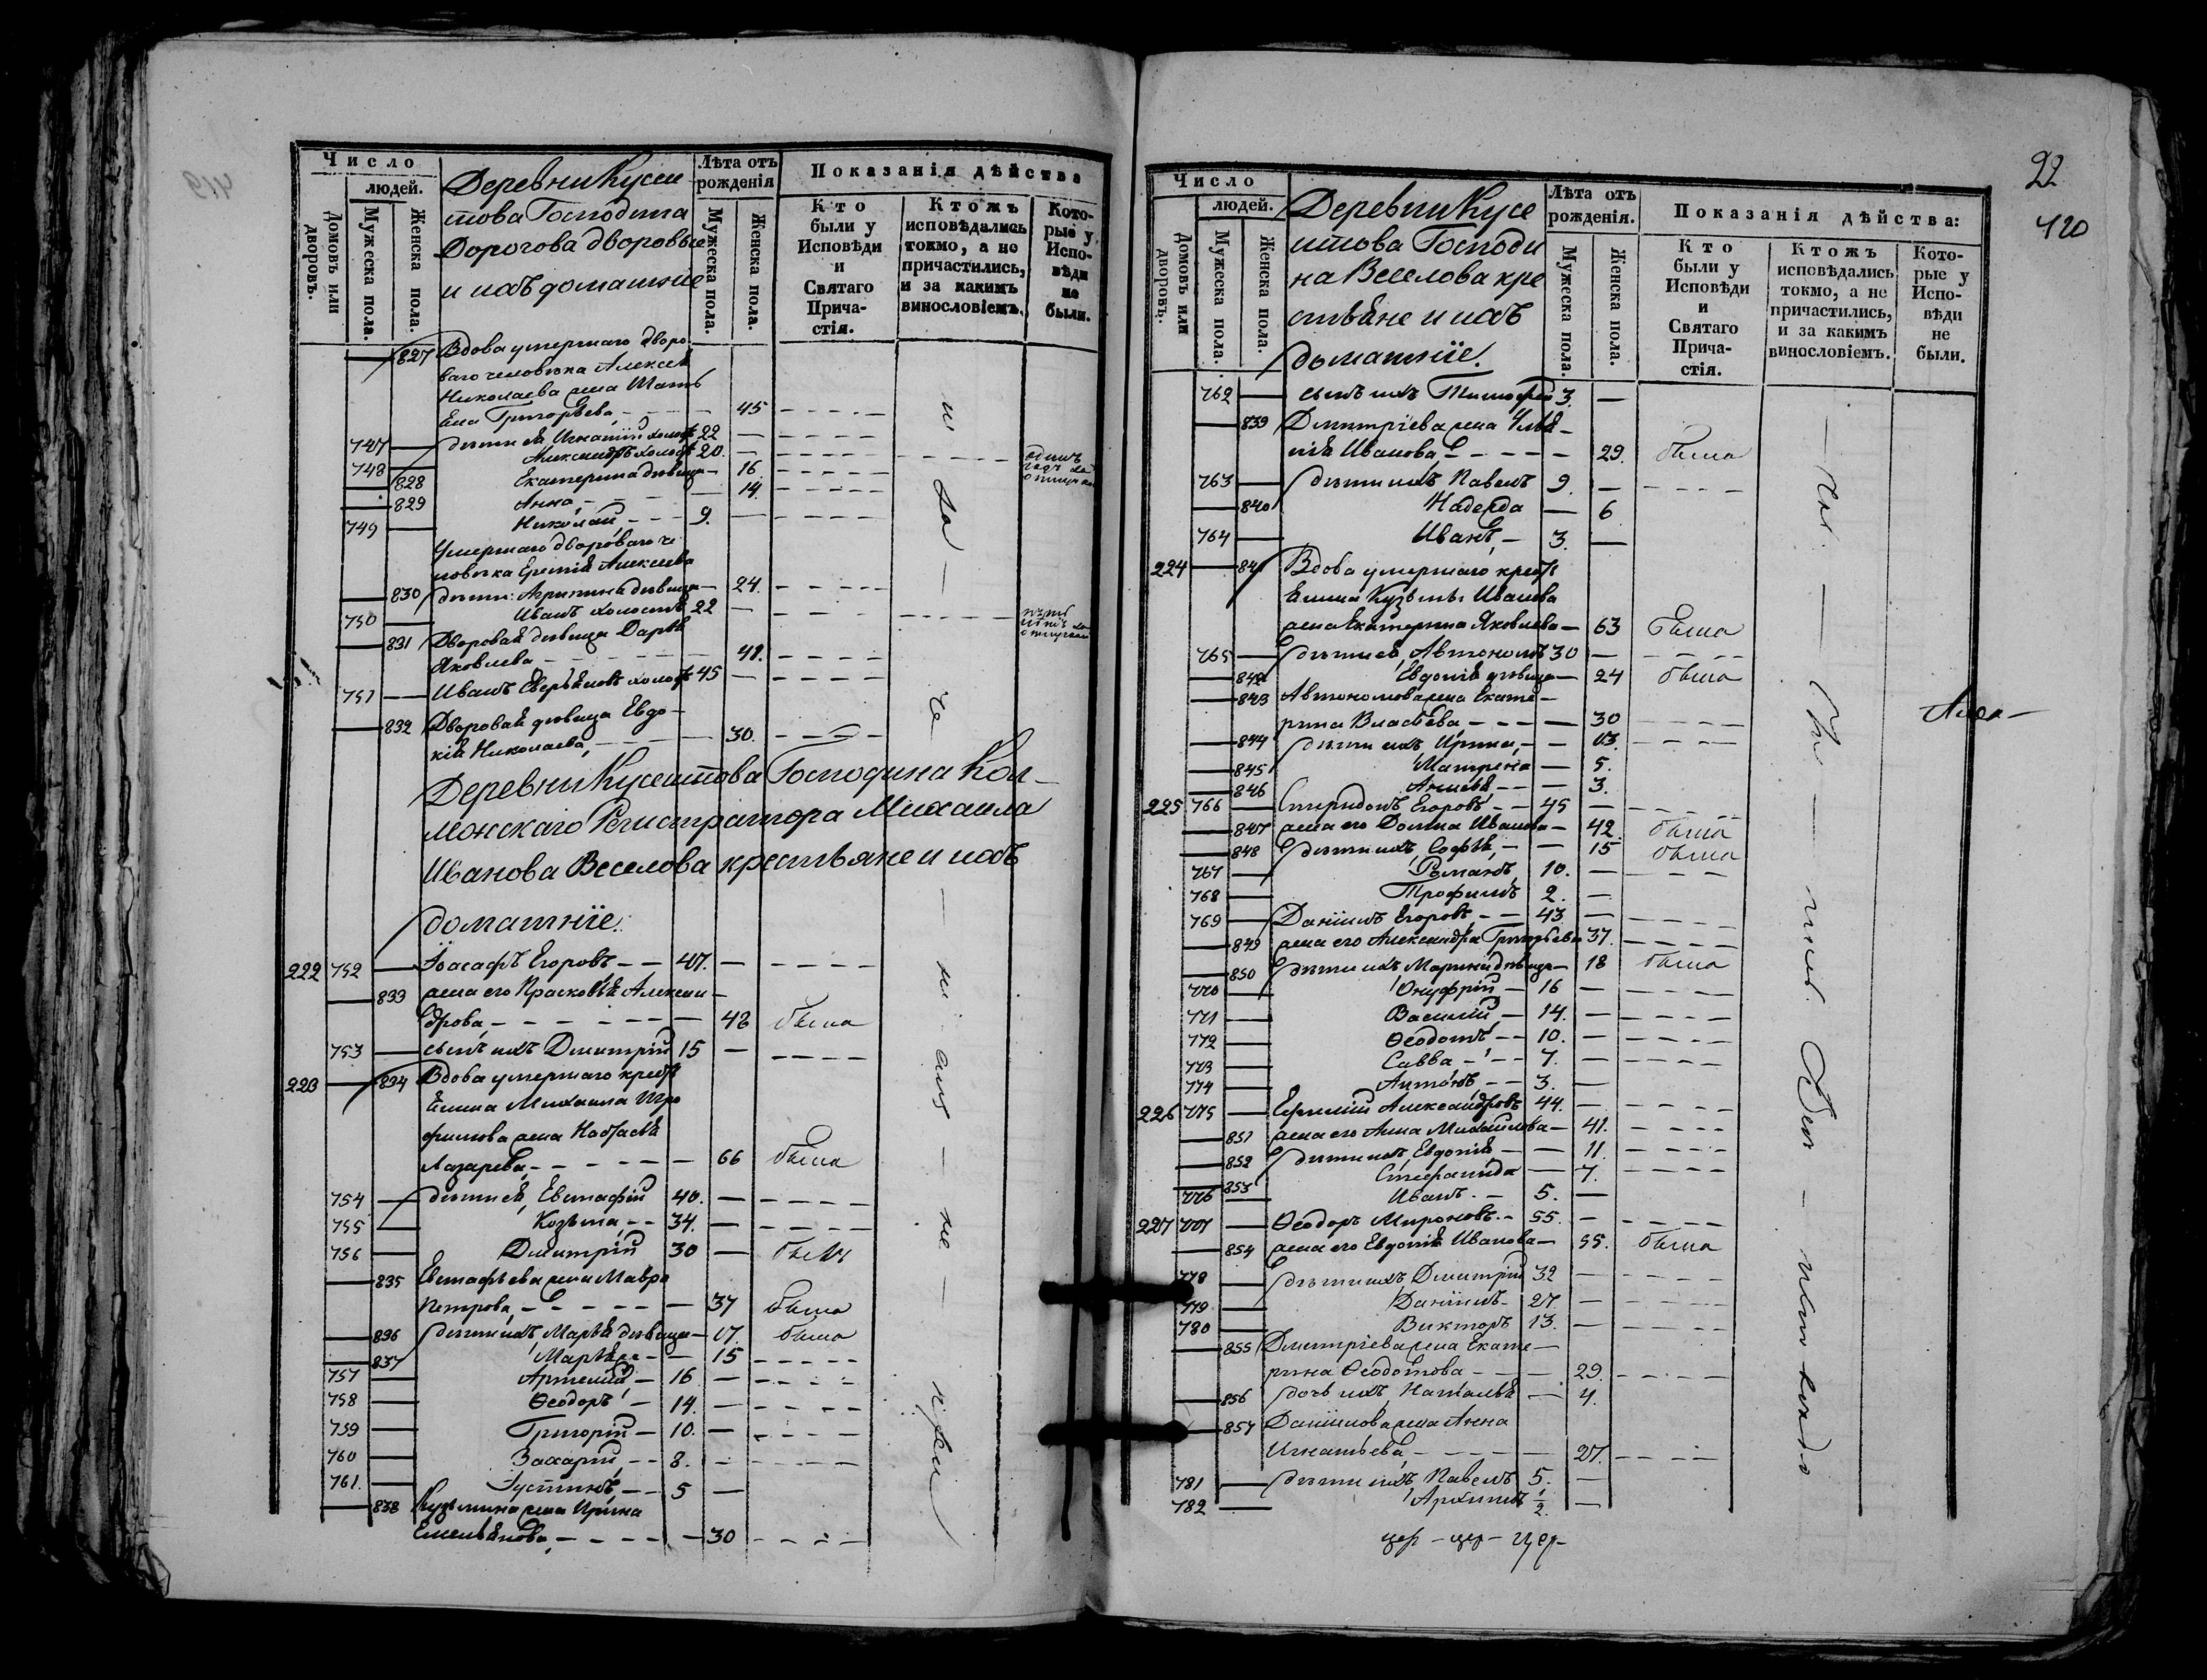 Число
людей.
Домовъ или дворовъ.
Мужеска пола.
Женска пола.
Деревни Кусеи
това Господина
Дорогова дворовые
и ихъ домашніе
Лѣта отъ
рожденія
Мужеска пола.
Женска пола.
Показанія дѣйства
Кто
были у
Исповѣди
и
Святаго
Прича-
стія.
Ктожъ
исповѣдались
токмо, а не
причастились,
и за какимъ
винословіемъ.
Кото-
рые у
Испо-
вѣди
не
были.
827 Вдова умершаго дворо
ваго человѣка Алексѣя
Николаева жена
Григорьева 45
747 дѣти ея Игнатій холостъ 22
748 Александръ холостъ 20
828 Екатерина дѣвица 16
829 Анна 14.
749 Николай 9.
Умершаго двороваго че
ловѣка Алексеева
830 дѣти: Агрипина дѣвица 24.
750 Иванъ холостъ 22
831 Дворовая дѣвица Дарья
Яковлева 41.
751 Иванъ холостъ 45
832 Дворовая дѣвица Евдо-
кія Николаева 30.
Деревни Кусеитова Господина Кол-
лежскаго Регистратора Михаила
Иванова Веселова крестьяне и ихъ
домашніе:
222 752 Іоасафъ Егоровъ 47.
833 жена его Прасковья Алексан-
дрова 48 была
753 сынъ ихъ Димитрій 15
223 834 Вдова умершаго крест
янина Михаила Тро
фимова жена Настасья
Лазарева 66 была
754 дѣти ея, Евстафій 40.
755 Козьма 34.
756 Димитрій 30 былъ
835 Евстафьева жена Мавра
Петрова 37 была
836 дѣти ихъ Марья дѣвица 17. была
837 Марѳа 15
757 Артемій 16
758 Ѳеодоръ 14.
759 Григорій 10.
760 Захарій 8.
761. Іустинъ 5
838 Кузьмина жена Ирина
Емельянова 30
22
420
Число
людей.
Домовъ или дворовъ.
Мужеска пола.
Женска пола.
Деревни Кусе
итова Господи
на Веселова кре
стьяне и ихъ
домашніе.
Лѣта отъ
рожденія.
Мужеска пола.
Женска пола.
Показанія дѣйства:
Кто
были у
Исповѣди
и
Святаго
Прича-
стія.
Ктожъ
исповѣдались
токмо, а не
причастились,
и за какимъ
винословіемъ.
Кото-
рые у
Испо-
вѣди
не
были.
762 сынъ ихъ Тимофей 3.
839 Димитріева жена Улья-
нія Иванова 29. была
763 дѣти ихъ Павелъ 9.
840 Надежда 6
764 Иванъ 3.
224 841 Вдова умершаго крест
янина Кузьмы Иванова
жена Екатерина Яковлева 63 была
765 дѣти ея, Автономъ 30
842 Евдокія дѣвица 24 была
843 Автономова жена Екате-
рина Власьева 30
844 дѣти ихъ Ирина 13.
845 Матрена 5.
846 Анисья 3.
225 766 Спиридонъ Егоровъ 45
847 жена его Домна Иванова 42. была
848 дѣти ихъ Софья 15 была
767 Романъ 10.
768 Трофимъ 2.
769 Даніилъ Егоровъ 43
849 жена его Александра Григорьева 37.
850 дѣти ихъ Марина дѣвица 18 была
770 Онуфрій 16
771 Василій 14.
772 Ѳеодотъ 10.
773 Савва 7.
774 Антонъ 3.
226 775 Ермилій Александровъ 44.
851 жена его Анна Михайлова 41.
852 дѣти ихъ Евдокія 11.
853 Стефанида 7.
776 Иванъ. 5.
227 777 Ѳеодоръ Мироновъ. 55.
854 жена его Евдокія Иванова 55. была
778 дѣти ихъ Димитрій 32
779 Даніилъ 27.
780 Викторъ 13.
855 Димитріева жена Екате-
рина Ѳеодотова 29.
856 дочь ихъ Наталья 4.
857 Даніилова жена Анна
Игнатьева 27.
781 дѣти ихъ Павелъ 5.
782 Архипъ 1/2